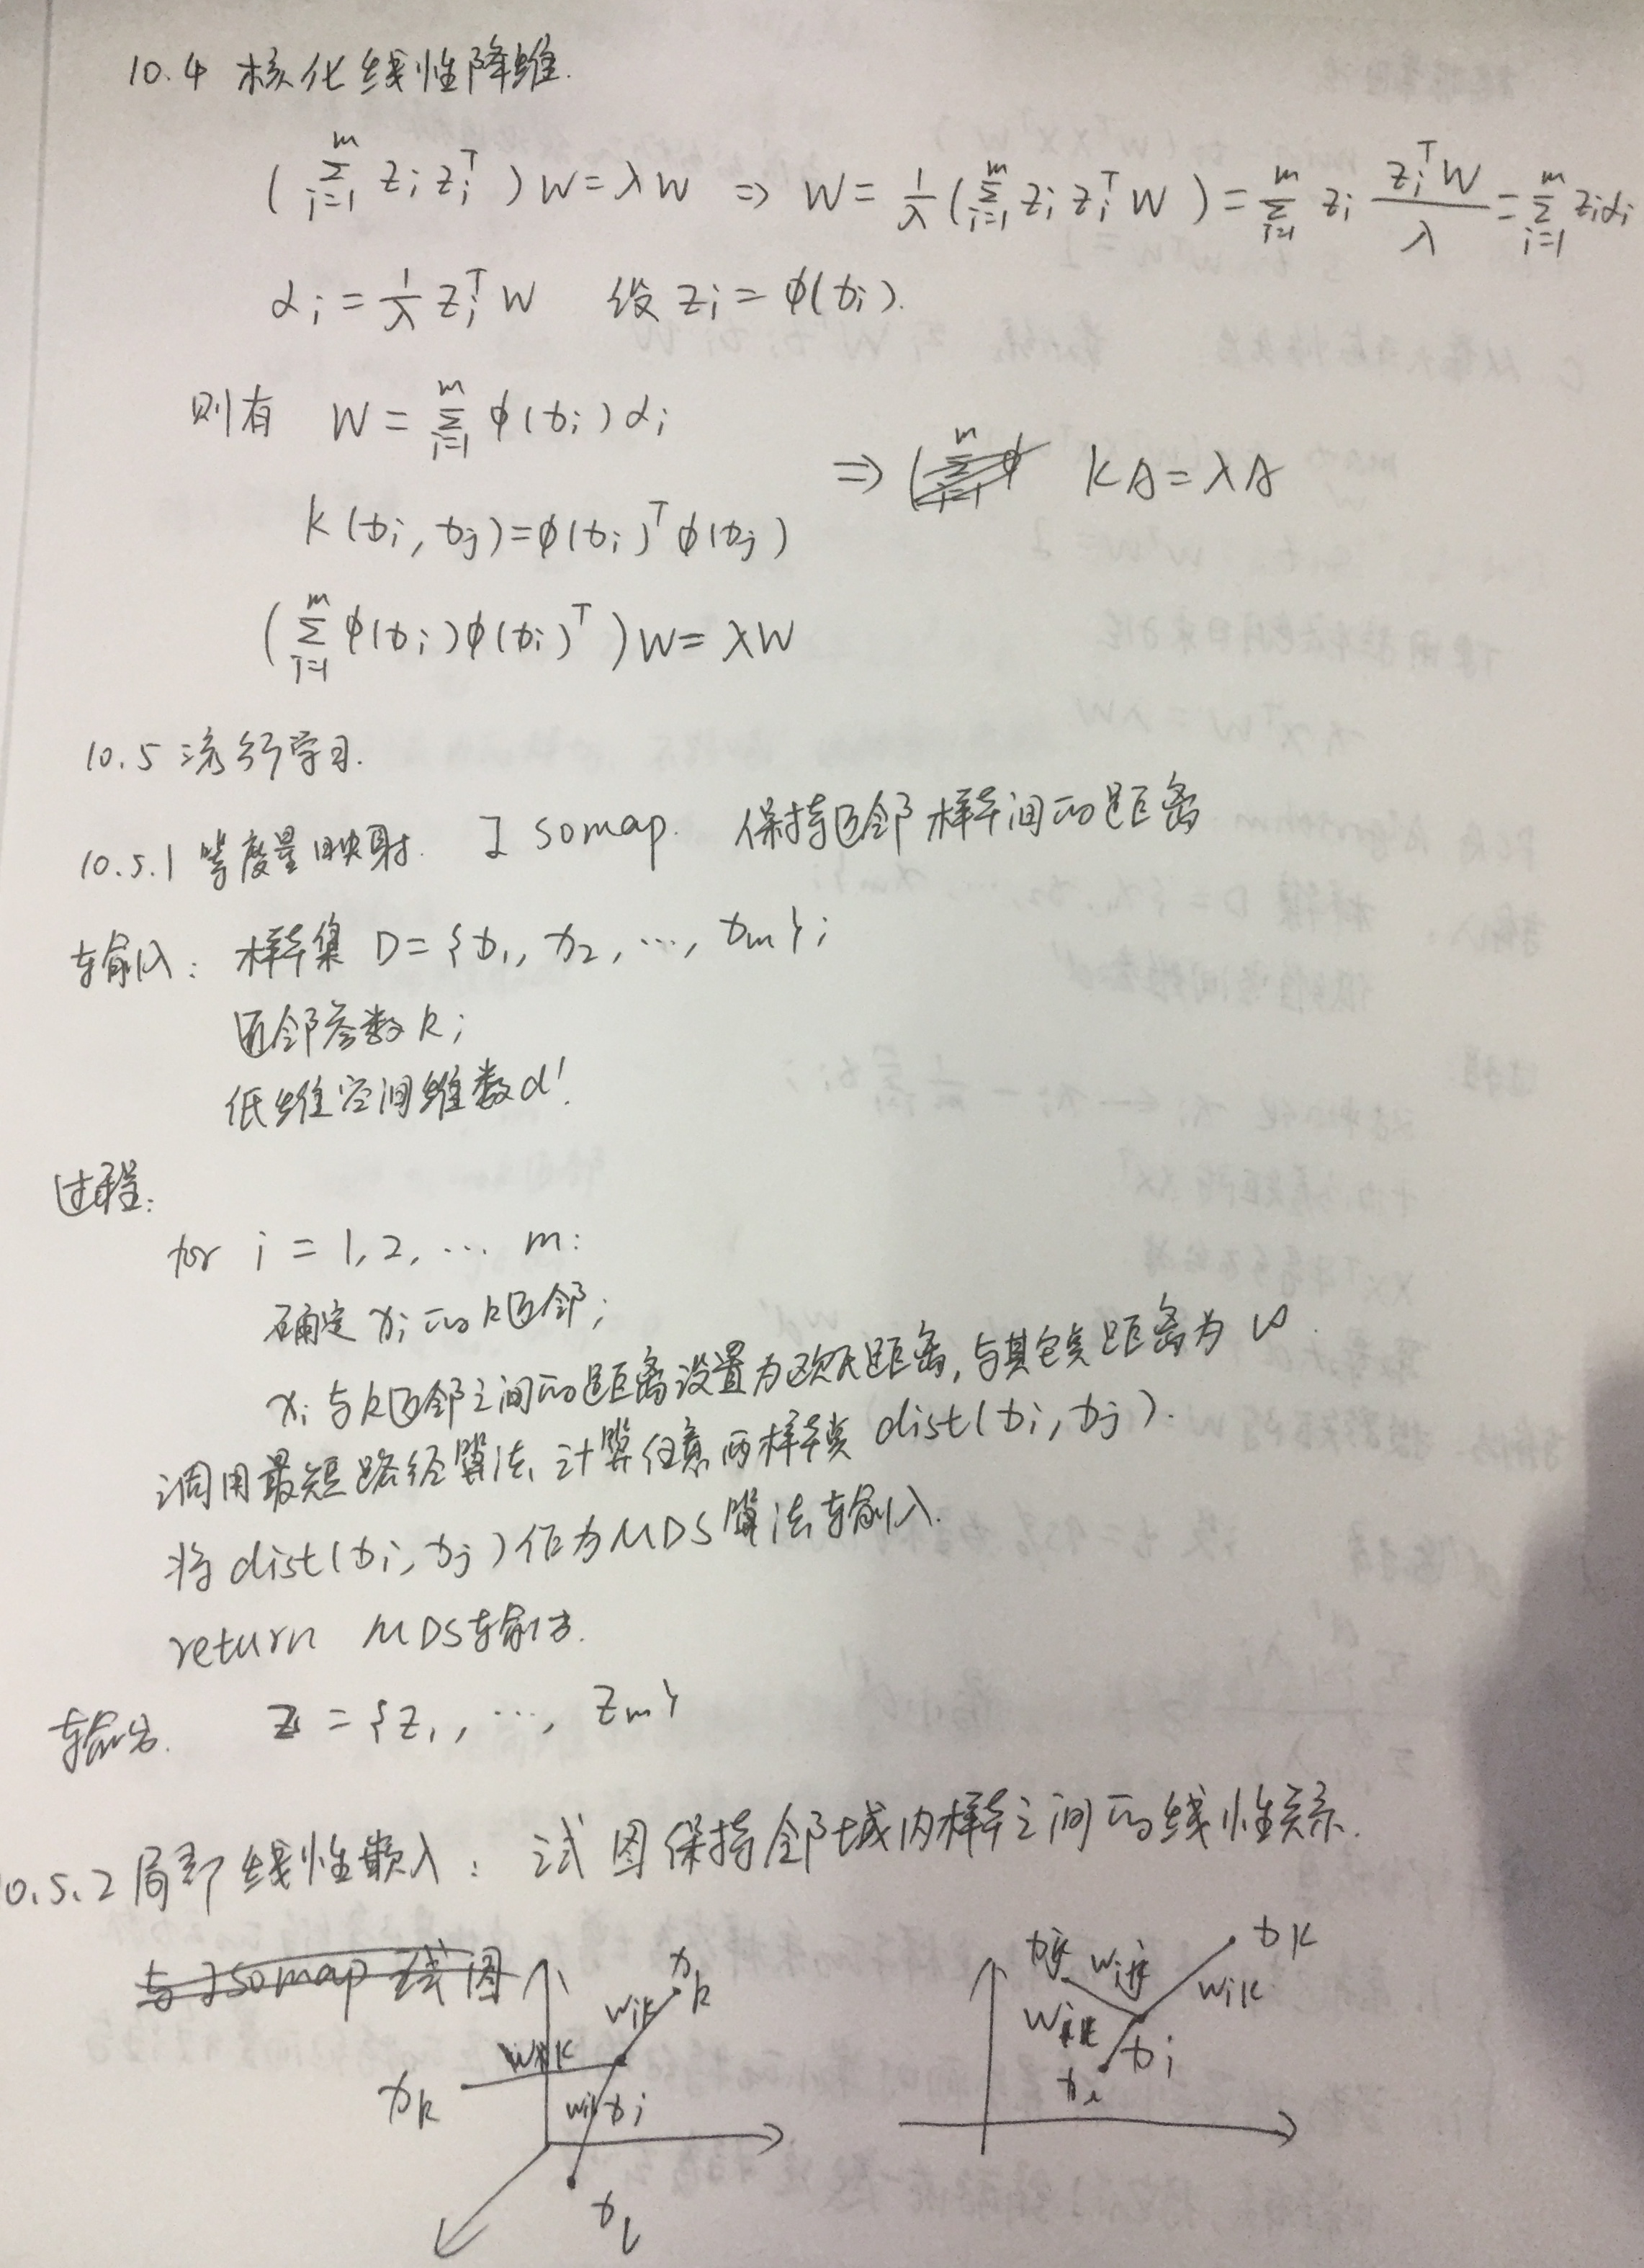 10.4 核化线性降维.
(∑_{i=1}^{m} z_i z_i^T) W = λW ⇒ W = 1/λ (∑_{i=1}^{m} z_i z_i^T W) = ∑_{i=1}^{m} z_i (z_i^T W)/λ = ∑_{i=1}^{m} z_i α_i
α_i = 1/λ z_i^T W 设 z_i = φ(x_i).
则有 W = ∑_{i=1}^{m} φ(x_i) α_i
⇒ KA = λA
K(x_i, x_j) = φ(x_i)^T φ(x_j)
(∑_{i=1}^{m} φ(x_i) φ(x_i)^T) W = λW
10.5 流行学习.
10.5.1 等度量映射. Isomap. 保持近邻样本间的距离
输入: 样本集 D = {x_1, x_2, ..., x_m};
近邻参数 k;
低维空间维数 d'.
过程:
for i = 1, 2, ... m:
确定 x_i 的 k 近邻;
x_i 与 k 近邻之间的距离设置为欧氏距离, 与其它点距离为 ∞.
调用最短路径算法, 计算任意两样本点 dist(x_i, x_j).
将 dist(x_i, x_j) 作为 MDS 算法输入.
return MDS 输出.
输出. Z = {z_1, ..., z_m}
10.5.2 局部线性嵌入: 试图保持邻域内样本之间的线性关系.
与 Isomap 试图
x_k w_ik x_k w_ik x_i x_l
x_j w_ij x_k w_ik x_i x_l